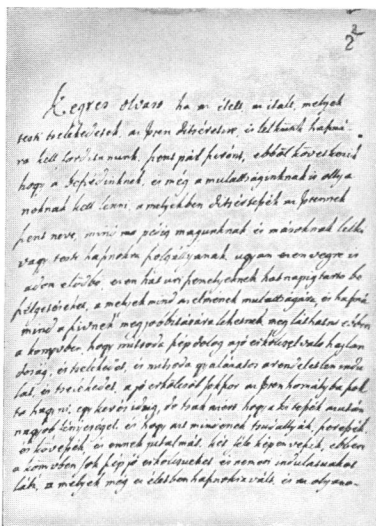 2
2
Kegyes olvaso ha az étele, az itale, melyek
testi tselekedetek, az Isten ditséretire, és lelkünk haszná-
ra kell forditanunk, szent pál szerént, ebből következik
hogy a beszédinknek, és még a mulattságunknak is ollya
noknak kell lenni, a melyekben ditsértessék az Istennek
szent neve, mind mü pedig magunknak és másoknak lelki
vagy testi hasznokra szolgállyanak, ugyan ezen végre is
adom elödbe, ezen hat uri személyeknek hat napig tarto be
szélgetéseket, a melyek mind az elmének mulattságára, és haszná
mind a szivnek meg jobbitására lehetnek meg láthatod ebben
a könyvben, hogy mitsoda szép dolog a jó erköltsre valo hajlan
doság, és tselekedet, és mitsoda gyalázatos a rendeletlen indu
lat, és tselekedet, a jó erköltsöt szokta az Isten homályba
ta hagyni, egy kevés ideig, de tsak azért hogy a ki tessék azután
nagyob fényeségel, és hogy azt mindenek tsudállyák, szeressék
és kövessék, és ennek jutalmát, két féle képen veszik, ebben
a könyvben sok szép jó erköltsüeket és nemes indulatuakot
láti, a melyek még ez életben hasznokra vált, és az olyano-